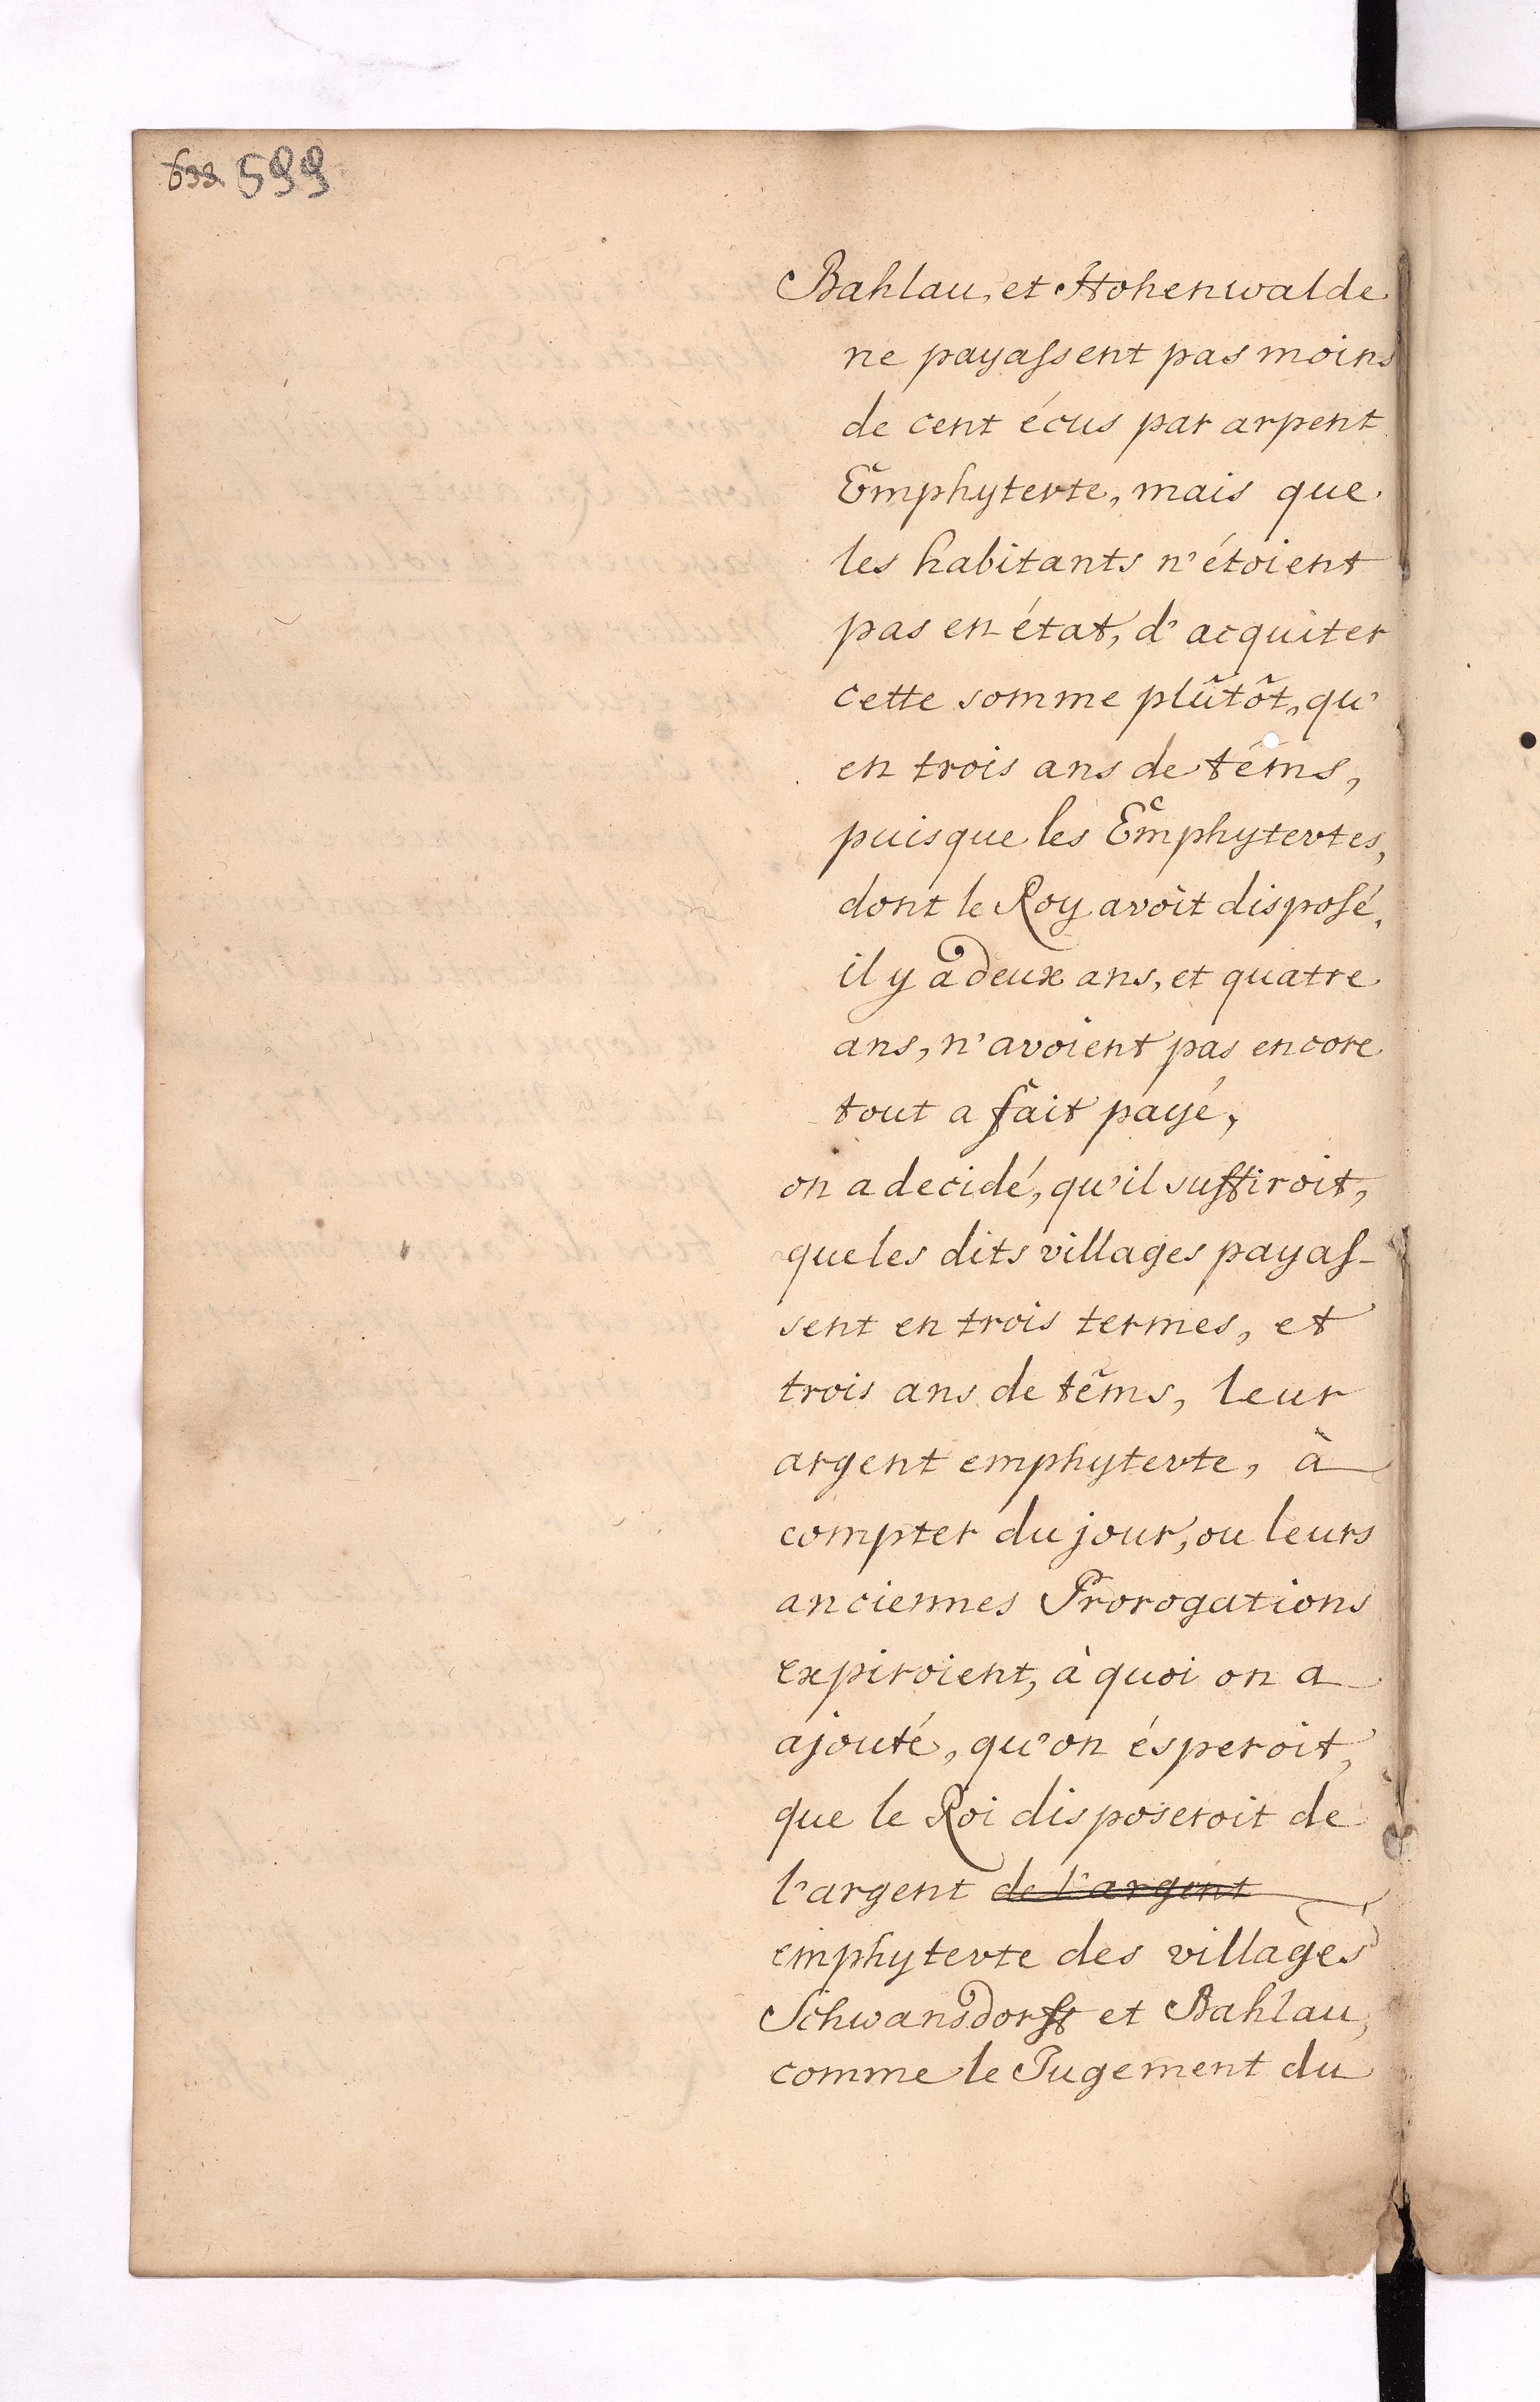 599
Bahlau, et Hohenwalde
ne payassent pas moins
de cent écus par arpent
Emphytevte, mais que
les habitants n'étoient
pas en état, d'acquiter
cette somme plûtôt, qu'
en trois ans de têms,
puisque les Emphytevtes,
dont le Roy avoit disposé,
il y a deux ans, et quatre
ans, n'avoient pas encore
tout a fait payé,
on a decidé, qu'il suffiroit,
que les dits villages payas-
sent en trois termes, et
trois ans de têms, leur
argent emphytevte, à
compter du jour, ou leurs
anciennes Prorogations
expiroient, à quoi on a
ajouté, qu'on ésperoit,
que le Roi disposeroit de
l'argent de l'argent
emphytevte des villages
Schwansdorff et Bahlau,
comme le Jugement du